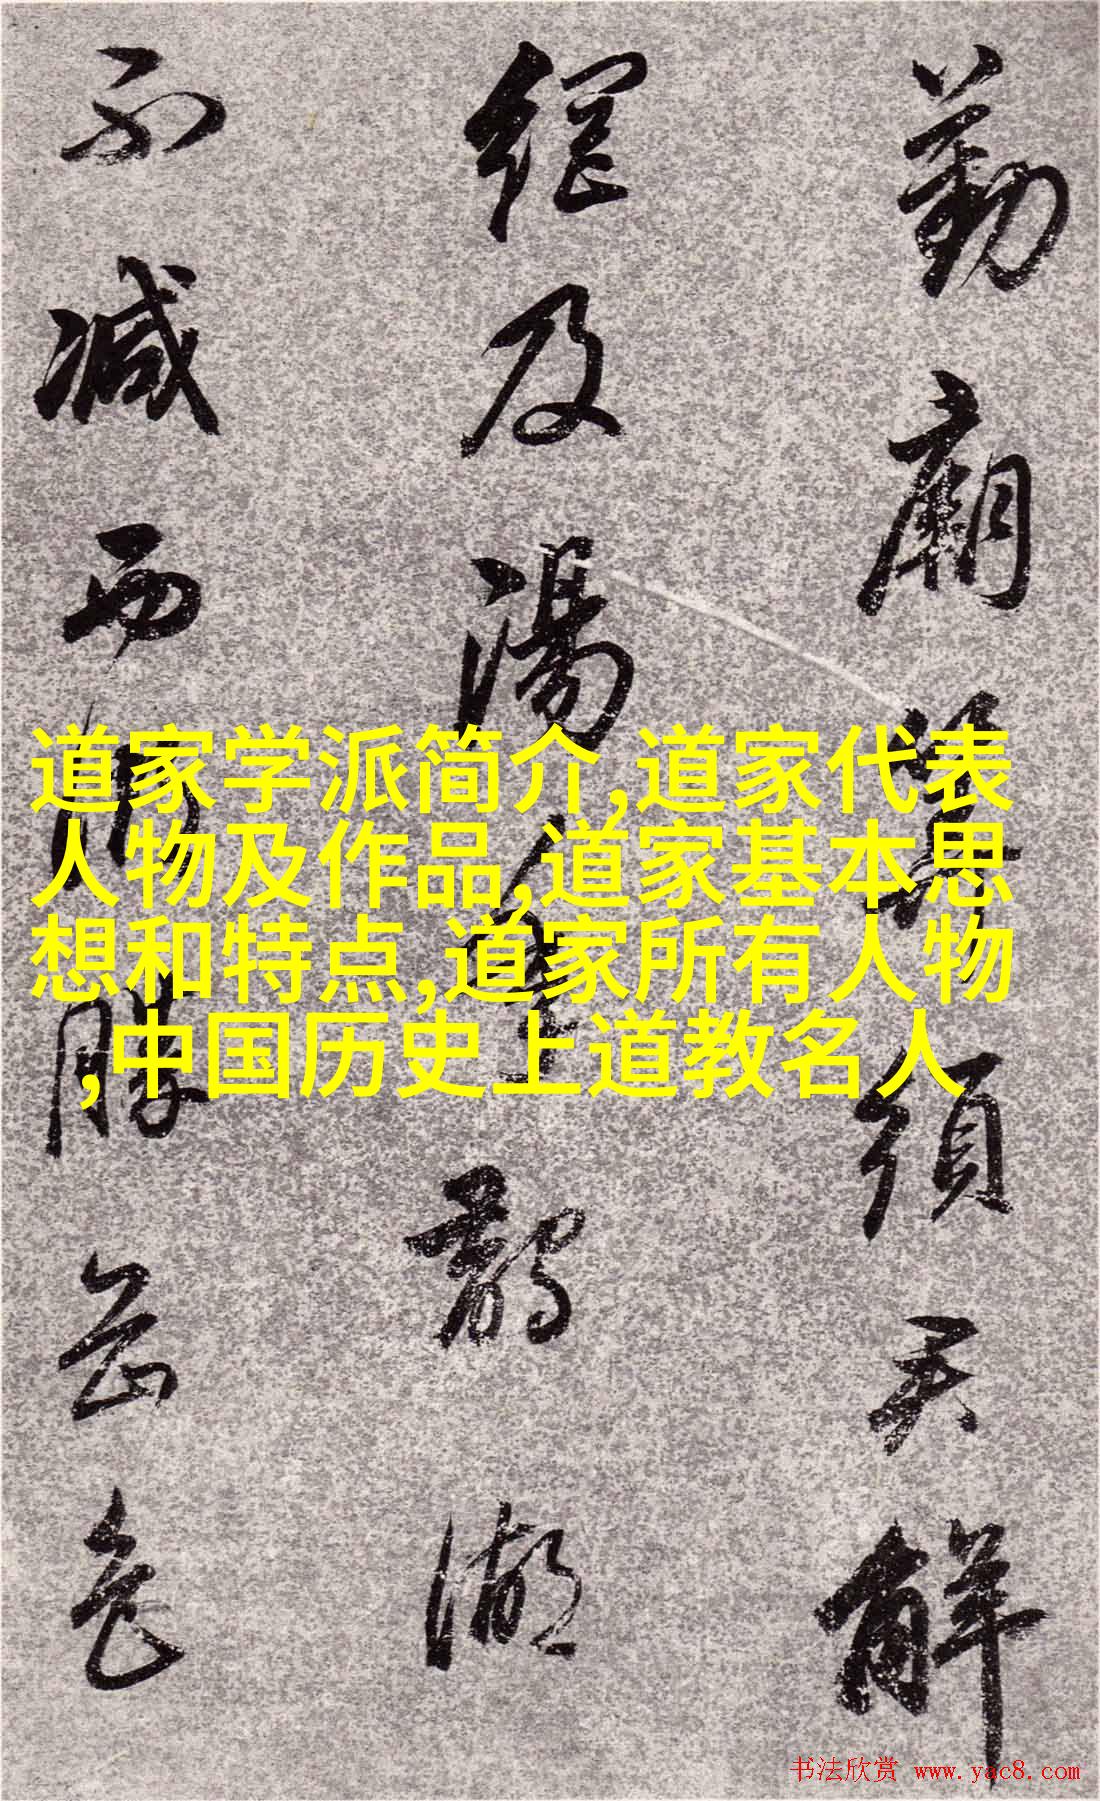 勤廟須解
網及湯湖
不減西湖勝
道家学派简介,道家代表
人物及作品,道家基本思
想和特点,道家所有人物
,中国历史上道教名人
书法欣赏 www.yac8.com